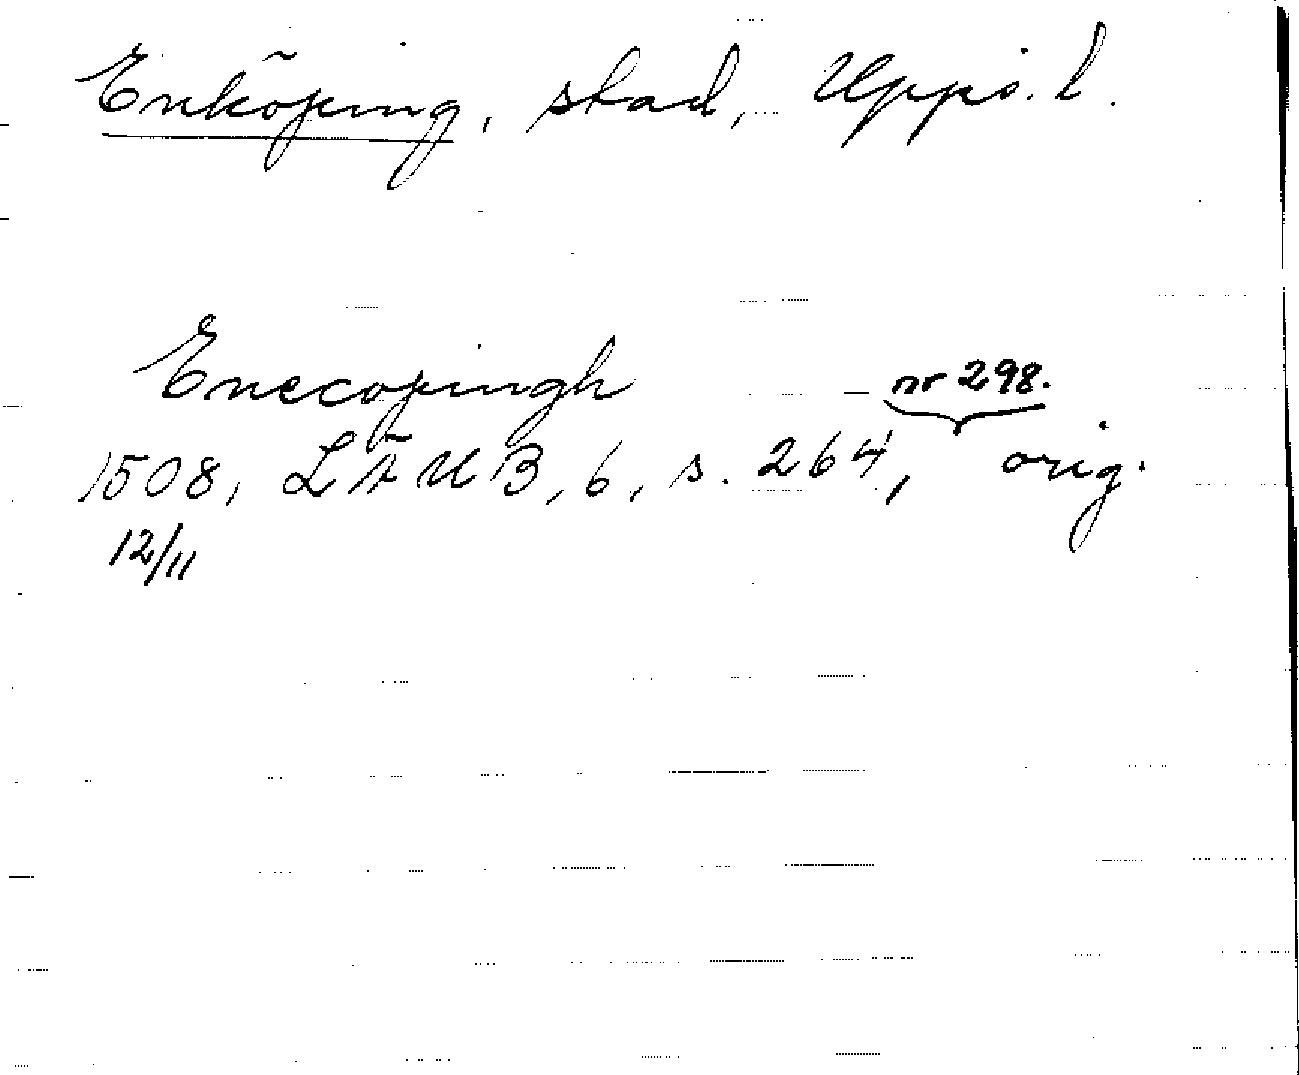 Enköping, stad, Upps. l.
Enecopingh
nr 298.
1508, LÄUB, 6, s. 264, orig.
12/11